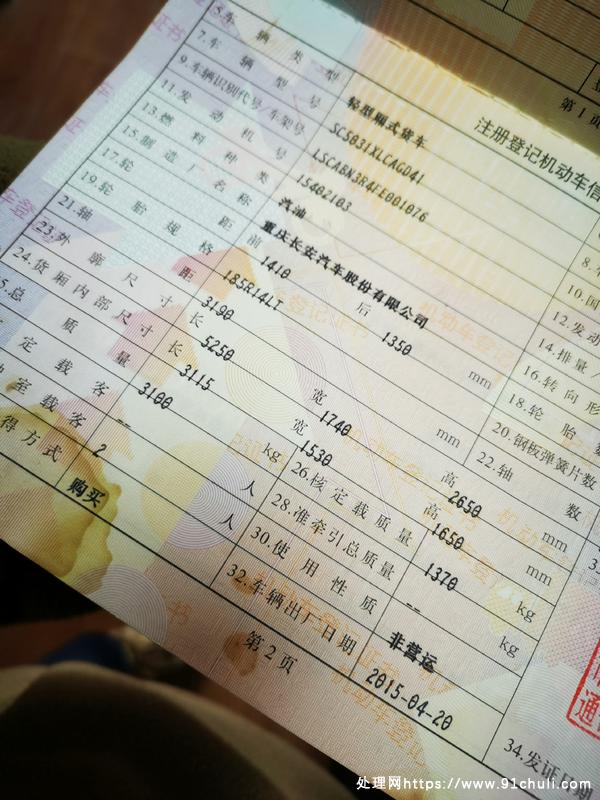 第1页
注册登记机动车信
5.车辆类型 轻型厢式货车
7.车辆型号 SC5031XLCAGD41
9.车辆识别代号/车架号 LSCABN3R4FE001076
11.发动机号 15402103
13.燃料种类 汽油
15.制造厂名称 重庆长安汽车股份有限公司
17.轮距 前 1410 后 1350 mm
19.轮胎规格 185R14LT
21.轴距 3100 mm
23.外廓尺寸 长 5250 宽 1740 高 2650 mm
24.货厢内部尺寸 长 3115 宽 1530 高 1650 mm
5.总质量 3100 kg 26.核定载质量 1370 kg
定载客 -- 人 28.准牵引总质量 -- kg
室载客 2 人 30.使用性质 非营运
得方式 购买 32.车辆出厂日期 2015-04-20
8.车
10.国
12.发动
14.排量/
16.转向形
18.轮胎数
20.钢板弹簧片数
22.轴数
34.发证日期
第2页
处理网https://www.91chuli.com/